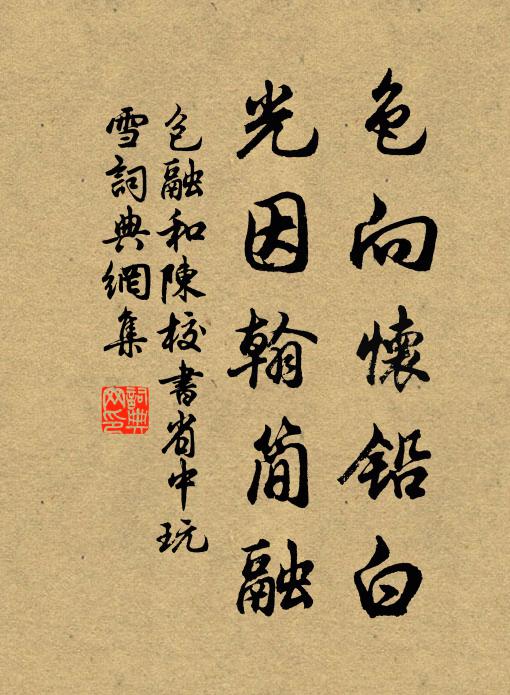 色向懷鉛白
光因翰簡融
包融和陳校書省中玩
雪詞典網集
詞典網印